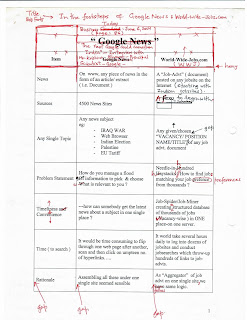 Title
In the footsteps of Google News & World-Wide-Jobs.com
Today
" Google News "
Item
Google News
World-Wide-Jobs.com
" WWJ "
heavy
News
On www, any piece of news in the form of an article/ extract (i.e. Document )
A "Job-Advt" ( document ) posted on any jobsite on the Internet (starting with Indian jobsites)
Sources
4500 News Sites
Any Single Topic
Any news subject
eg:
- IRAQ WAR
- Web Browser
- Indian Election
- Palestine
- EU Tariff
Any given/chosen "VACANCY/ POSITION NAME/TITLE" of any job advt. document
Problem Statement
How do you manage a flood of information to pick & choose What is relevant to you ?
Needle-in-hundred Haystacks. How to find jobs matching your job preferences from thousands ?
Timeframe and Convenience
---how can somebody get the latest news about a subject in one single place ?
Job-Spider/Job Miner creating structured database of thousands of jobs (Vacancy-wise) in ONE place on one server.
Time ( to search )
It would be time consuming to flip through one web page after another, scan and then click on umpteen no of hyperlinks…..
It would take several hours daily to log into dozens of jobsites and conduct jobsearches which throw-up hundreds of links to job advts.
Rationale
Assembling all those under one single site seemed sensible
An "Aggregator" of job advt on one single site, has same logic.
gap
gap
gap